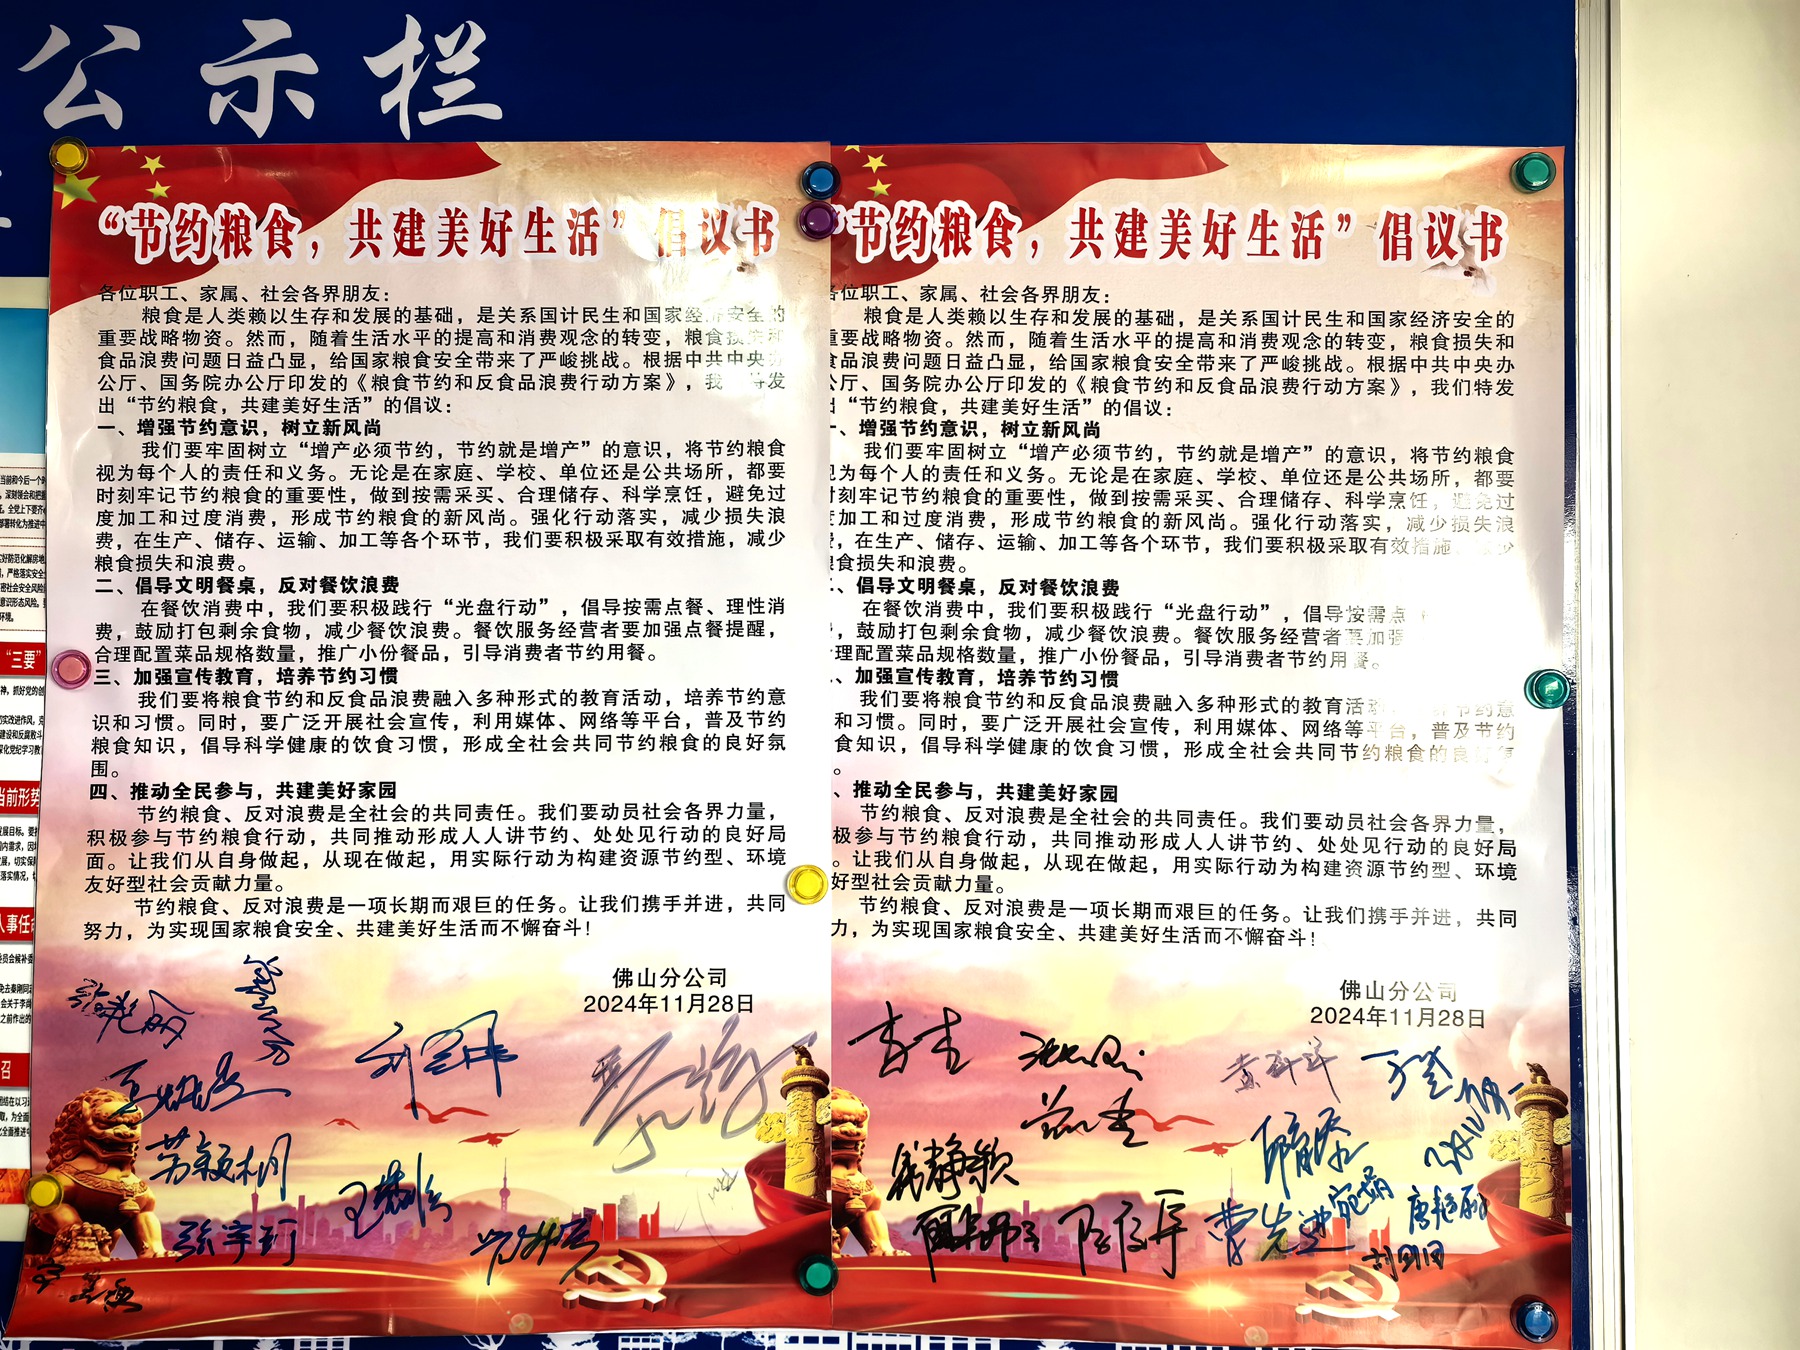 公示栏
“节约粮食，共建美好生活”倡议书
各位职工、家属、社会各界朋友：
粮食是人类赖以生存和发展的基础，是关系国计民生和国家经济安全的
重要战略物资。然而，随着生活水平的提高和消费观念的转变，粮食损失和
食品浪费问题日益凸显，给国家粮食安全带来了严峻挑战。根据中共中央办
公厅、国务院办公厅印发的《粮食节约和反食品浪费行动方案》，我 特发
出“节约粮食，共建美好生活”的倡议：
一、增强节约意识，树立新风尚
我们要牢固树立“增产必须节约，节约就是增产”的意识，将节约粮食
视为每个人的责任和义务。无论是在家庭、学校、单位还是公共场所，都要
时刻牢记节约粮食的重要性，做到按需采买、合理储存、科学烹饪，避免过
度加工和过度消费，形成节约粮食的新风尚。强化行动落实，减少损失浪
费，在生产、储存、运输、加工等各个环节，我们要积极采取有效措施，减少
粮食损失和浪费。
二、倡导文明餐桌，反对餐饮浪费
在餐饮消费中，我们要积极践行“光盘行动”，倡导按需点餐、理性消
费，鼓励打包剩余食物，减少餐饮浪费。餐饮服务经营者要加强点餐提醒，
合理配置菜品规格数量，推广小份餐品，引导消费者节约用餐。
三、加强宣传教育，培养节约习惯
我们要将粮食节约和反食品浪费融入多种形式的教育活动，培养节约意
识和习惯。同时，要广泛开展社会宣传，利用媒体、网络等平台，普及节约
粮食知识，倡导科学健康的饮食习惯，形成全社会共同节约粮食的良好氛
围。
四、推动全民参与，共建美好家园
节约粮食、反对浪费是全社会的共同责任。我们要动员社会各界力量，
积极参与节约粮食行动，共同推动形成人人讲节约、处处见行动的良好局
面。让我们从自身做起，从现在做起，用实际行动为构建资源节约型、环境
友好型社会贡献力量。
节约粮食、反对浪费是一项长期而艰巨的任务。让我们携手并进，共同
努力，为实现国家粮食安全、共建美好生活而不懈奋斗！
佛山分公司
2024年11月28日
张艳丽
苏颖桐
张宇珂
“节约粮食，共建美好生活”倡议书
各位职工、家属、社会各界朋友：
粮食是人类赖以生存和发展的基础，是关系国计民生和国家经济安全的
重要战略物资。然而，随着生活水平的提高和消费观念的转变，粮食损失和
食品浪费问题日益凸显，给国家粮食安全带来了严峻挑战。根据中共中央办
公厅、国务院办公厅印发的《粮食节约和反食品浪费行动方案》，我们特发
“节约粮食，共建美好生活”的倡议：
、增强节约意识，树立新风尚
我们要牢固树立“增产必须节约，节约就是增产”的意识，将节约粮食
视为每个人的责任和义务。无论是在家庭、学校、单位还是公共场所，都要
时刻牢记节约粮食的重要性，做到按需采买、合理储存、科学烹饪，避免过
度加工和过度消费，形成节约粮食的新风尚。强化行动落实，减少损失浪
，在生产、储存、运输、加工等各个环节，我们要积极采取有效措施，减少
粮食损失和浪费。
、倡导文明餐桌，反对餐饮浪费
在餐饮消费中，我们要积极践行“光盘行动”，倡导按需点
，鼓励打包剩余食物，减少餐饮浪费。餐饮服务经营者要加强
理配置菜品规格数量，推广小份餐品，引导消费者节约用餐。
、加强宣传教育，培养节约习惯
我们要将粮食节约和反食品浪费融入多种形式的教育活动 节约意
和习惯。同时，要广泛开展社会宣传，利用媒体、网络等平台，普及节约
食知识，倡导科学健康的饮食习惯，形成全社会共同节约粮食的良好氛
。
、推动全民参与，共建美好家园
节约粮食、反对浪费是全社会的共同责任。我们要动员社会各界力量，
极参与节约粮食行动，共同推动形成人人讲节约、处处见行动的良好局
。让我们从自身做起，从现在做起，用实际行动为构建资源节约型、环境
好型社会贡献力量。
节约粮食、反对浪费是一项长期而艰巨的任务。让我们携手并进，共同
力，为实现国家粮食安全、共建美好生活而不懈奋斗！
佛山分公司
2024年11月28日
钱静颖
曹先进
唐艳丽
“三要”
当前形势
人事任
召